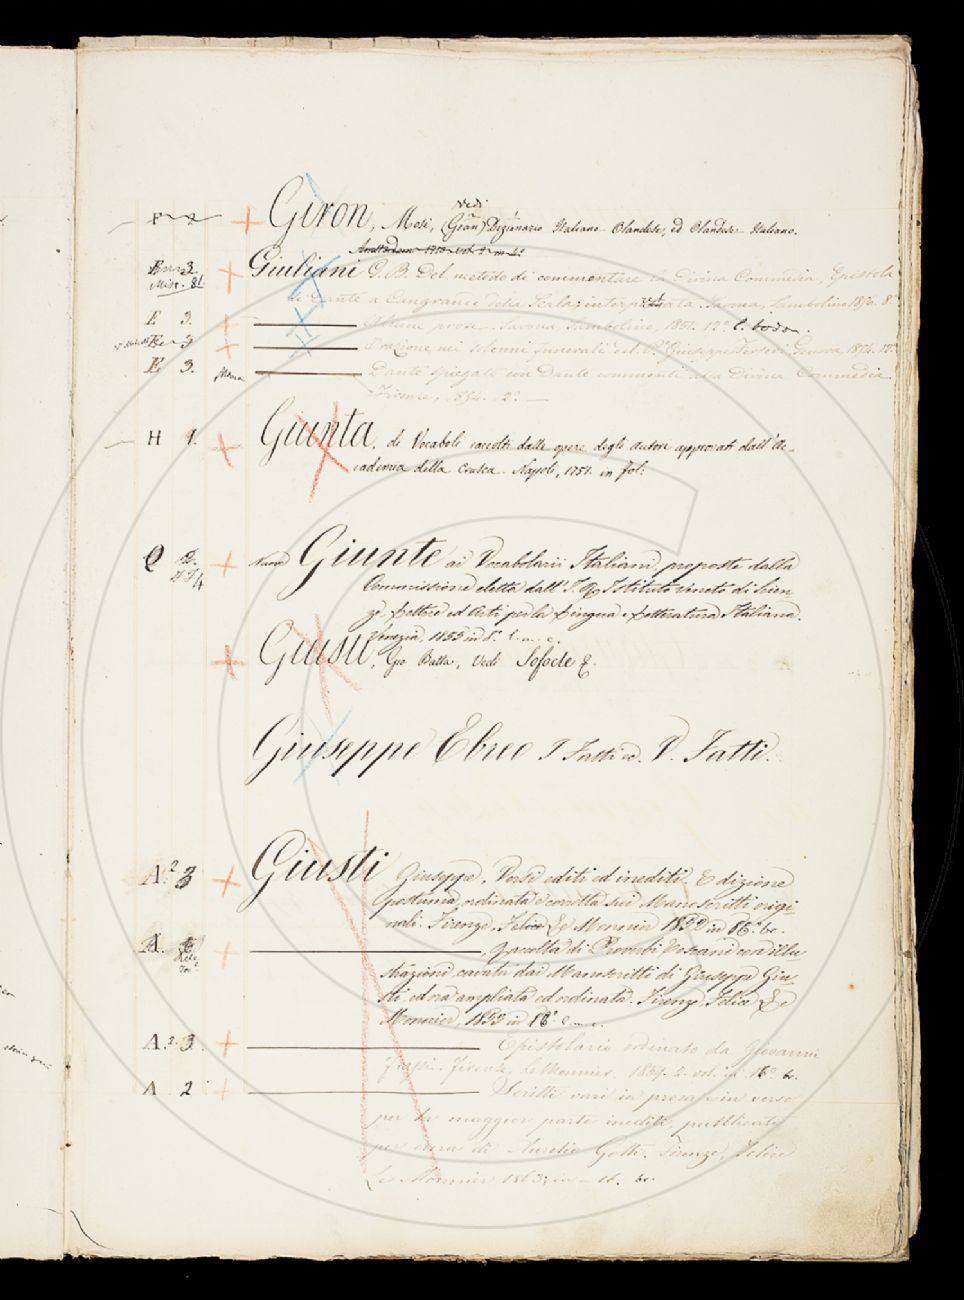 F 2 Giron, Mosè, vedi (Gran) Dizionario Italiano Olandese, ed Olandese Italiano.
Amsterdam 1710 vol. 2 in 4º
E 3. Giuliani G. B. Del metodo di commentare la Divina Commedia, Epistola
Misc. 81 di Dante a Cangrande della Scala interpretata. Savona, Sambolino 1856. 8º
E 3. Alcune prose. Savona, Sambolino, 1851. 12º C. bodon.
E 3 Orazione nei solenni funerali del P. Giuseppe Genova 12º
E 3. Manca Dante spiegato con Dante commenti alla Divina Commedia
Firenze, 12º
H 1. Giunta, di Vocaboli raccolti dalle opere degli autori approvati dall'Ac-
cademia della Crusca. Napoli, 1751. in fol.
Q Nuove Giunte ai Vocabolarii Italiani, proposte dalla
Commissione eletta dall' I. R. Istituto veneto di Scien
ze, Lettere ed Arti per la Lingua e Letteratura Italiana.
Venezia, 1855 in 8º
Giusti, Gio Batta, Vedi Sofocle
Giuseppe Ebreo I Fatti V. Fatti.
A.2 3 Giusti Giuseppe, Versi editi ed inediti. Edizione
postuma, ordinata e corretta sui Manoscritti origi-
nali. Firenze, Felice Le Monnier 1852 in 16º br.
A. Raccolta di Proverbi Toscani con illu-
strazioni, cavata dai Manoscritti di Giuseppe Giu-
sti ed ora ampliata ed ordinata. Firenze Felice Le
Monnier, 1853 in 16º
A.2. 3. Epistolario ordinato da Giovanni
Frassi. Firenze, Le Monnier, 1859. 2. vol. in 16º br.
A 2 Scritti vari in prosa e in verso
per la maggior parte inediti, pubblicati
per cura di Aurelio Gotti. Firenze, Felice
Le Monnier 1863; in 16. br.